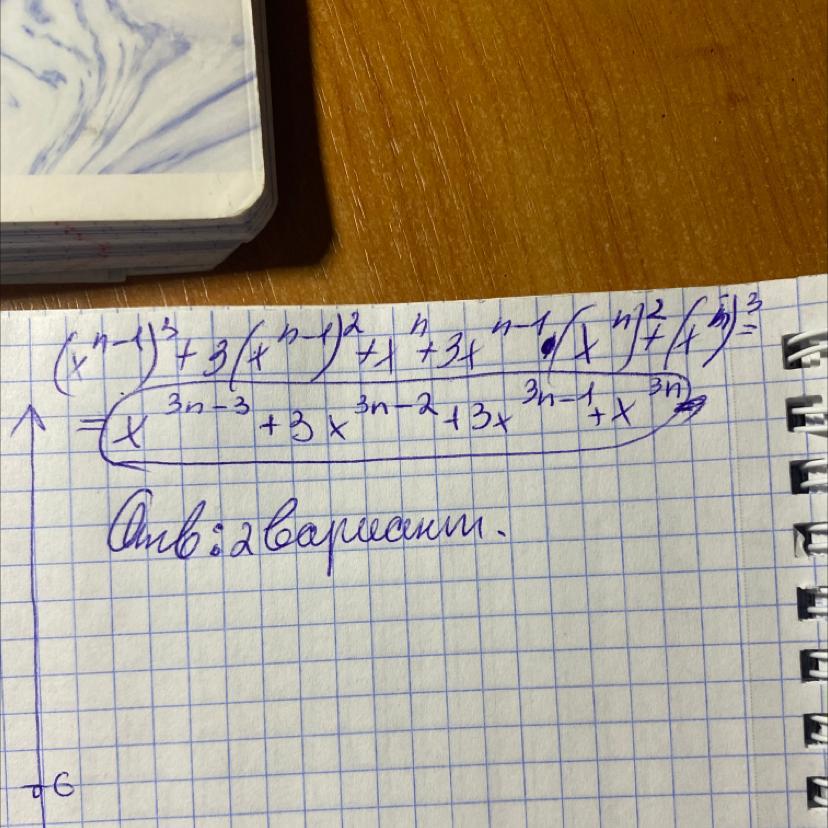 (x^{n-1})^3 + 3(x^{n-1})^2 + x^n + 3x^{n-1} · (x^n)^2 + (x^n)^3 =
= x^{3n-3} + 3x^{3n-2} + 3x^{3n-1} + x^{3n}
Отв: 2 вариант.
6